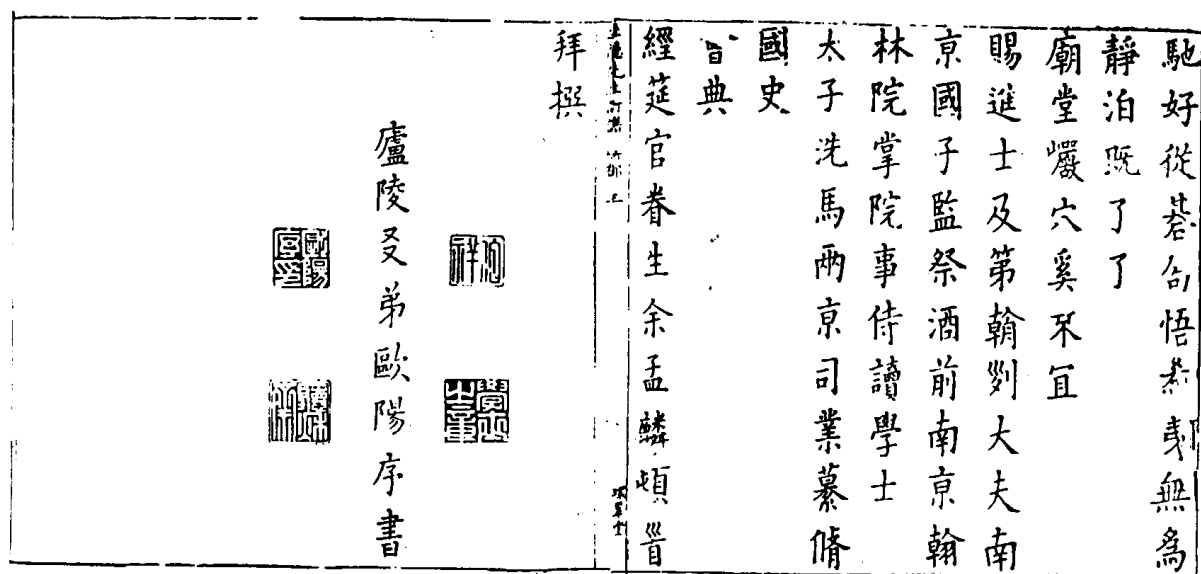 馳好從碁句悟希夷無為
靜泊既了了
廟堂巖穴奚不宜
賜進士及第朝列大夫南
京國子監祭酒前南京翰
林院掌院事侍讀學士
太子洗馬兩京司業纂脩
國史
會典
經筵官眷生余孟麟頓首
坐隱先生訂棊
環翠堂
拜撰
廬陵友弟歐陽序書